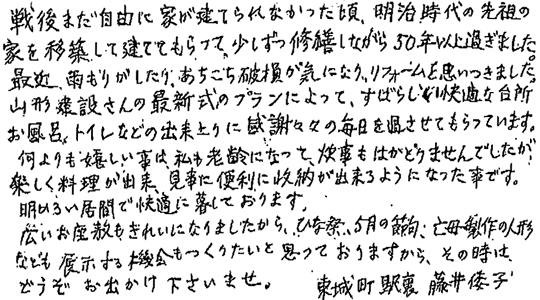 戦後まだ自由に家が建てられなかった頃、明治時代の先祖の
家を移築して建ててもらって、少しずつ修繕しながら50年以上過ぎました。
最近、雨もりがしたり、あちこち破損が気になり、リフォームを思いつきました。
山形建設さんの最新式のプランによって、すばらしい快適な台所
お風呂、トイレなどの出来上りに感謝々々の毎日を過させてもらっています。
何よりも嬉しい事は、私も老齢になって、炊事もはかどりませんでしたが
楽しく料理が出来、見事に便利に収納が出来るようになった事です。
明めるい居間で快適に暮しております。
広いお座敷もきれいになりましたから、ひな祭、5月の節句、亡母製作の人形
なども展示する機会もつくりたいと思っておりますから、その時は
どうぞお出かけ下さいませ。 東城町駅裏 藤井倭子